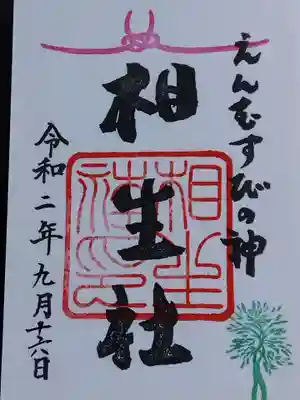 えんむすびの神
相生社
相生社神印
令和二年九月十六日